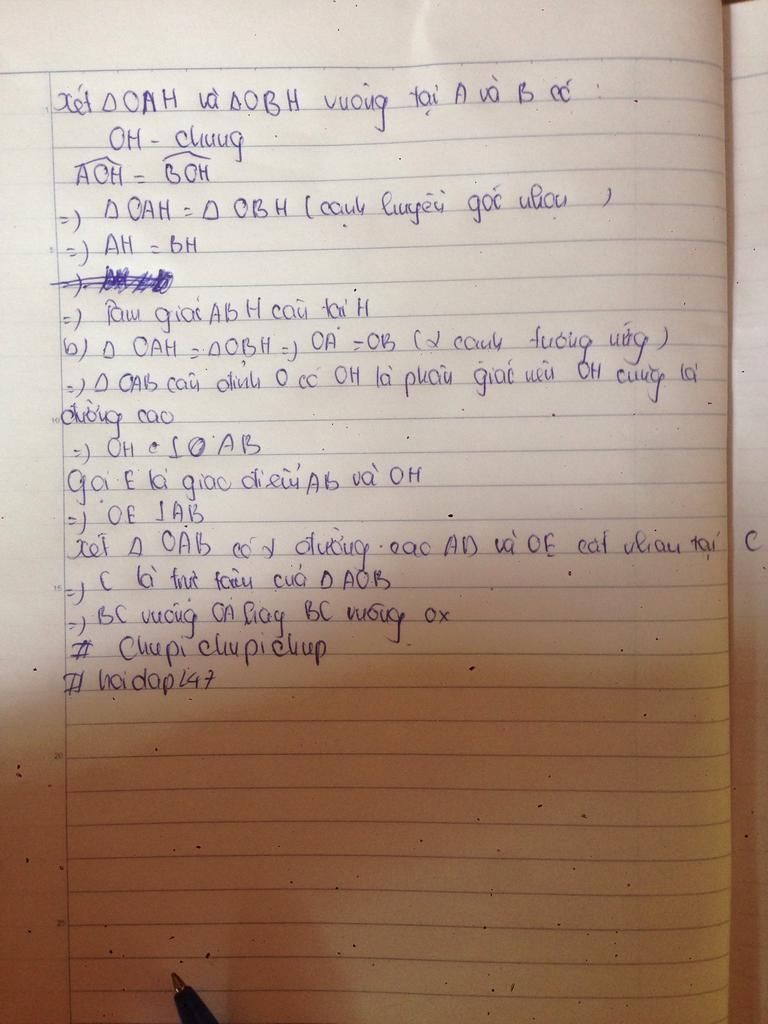 Xét Δ OAH và Δ OBH vuông tại A và B có :
OH - chung
AOH = BOH
=) Δ OAH = Δ OBH (cạnh huyền góc nhọn )
=) AH = BH
=)
=) Tam giác ABH cân tại H
b) Δ OAH = Δ OBH =) OA = OB (2 cạnh tương ứng)
=) Δ OAB cân đỉnh O có OH là phân giác nên OH cũng là
đường cao
=) OH ⊥ AB
Gọi E là giao điểm AB và OH
=) OE ⊥ AB
Xét Δ OAB có 2 đường cao AD và OE cắt nhau tại C
=) C là trực tâm của Δ AOB
=) BC vuông OA hay BC vuông ox
# Chupichupichup
# hoidap247